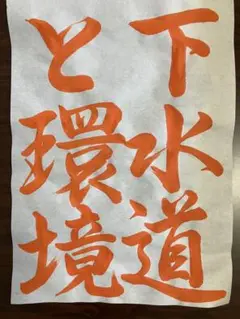 下水道
と環境